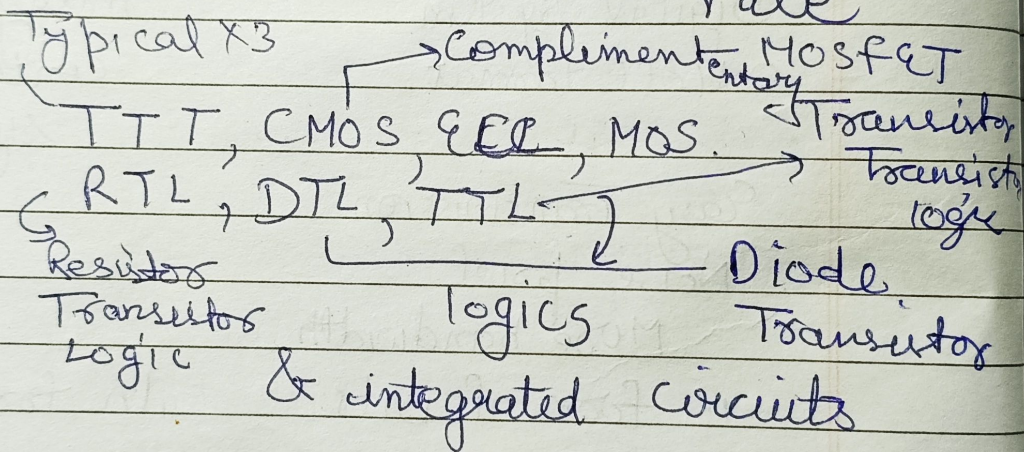 Typical x3
Complimentary MOSFET
TTT, CMOS, EEL, MOS.
Transistor
Transistor
logic
RTL, DTL, TTL
Resistor
Transistor
Logic
Diode
Transistor
logics
& integrated Circuits